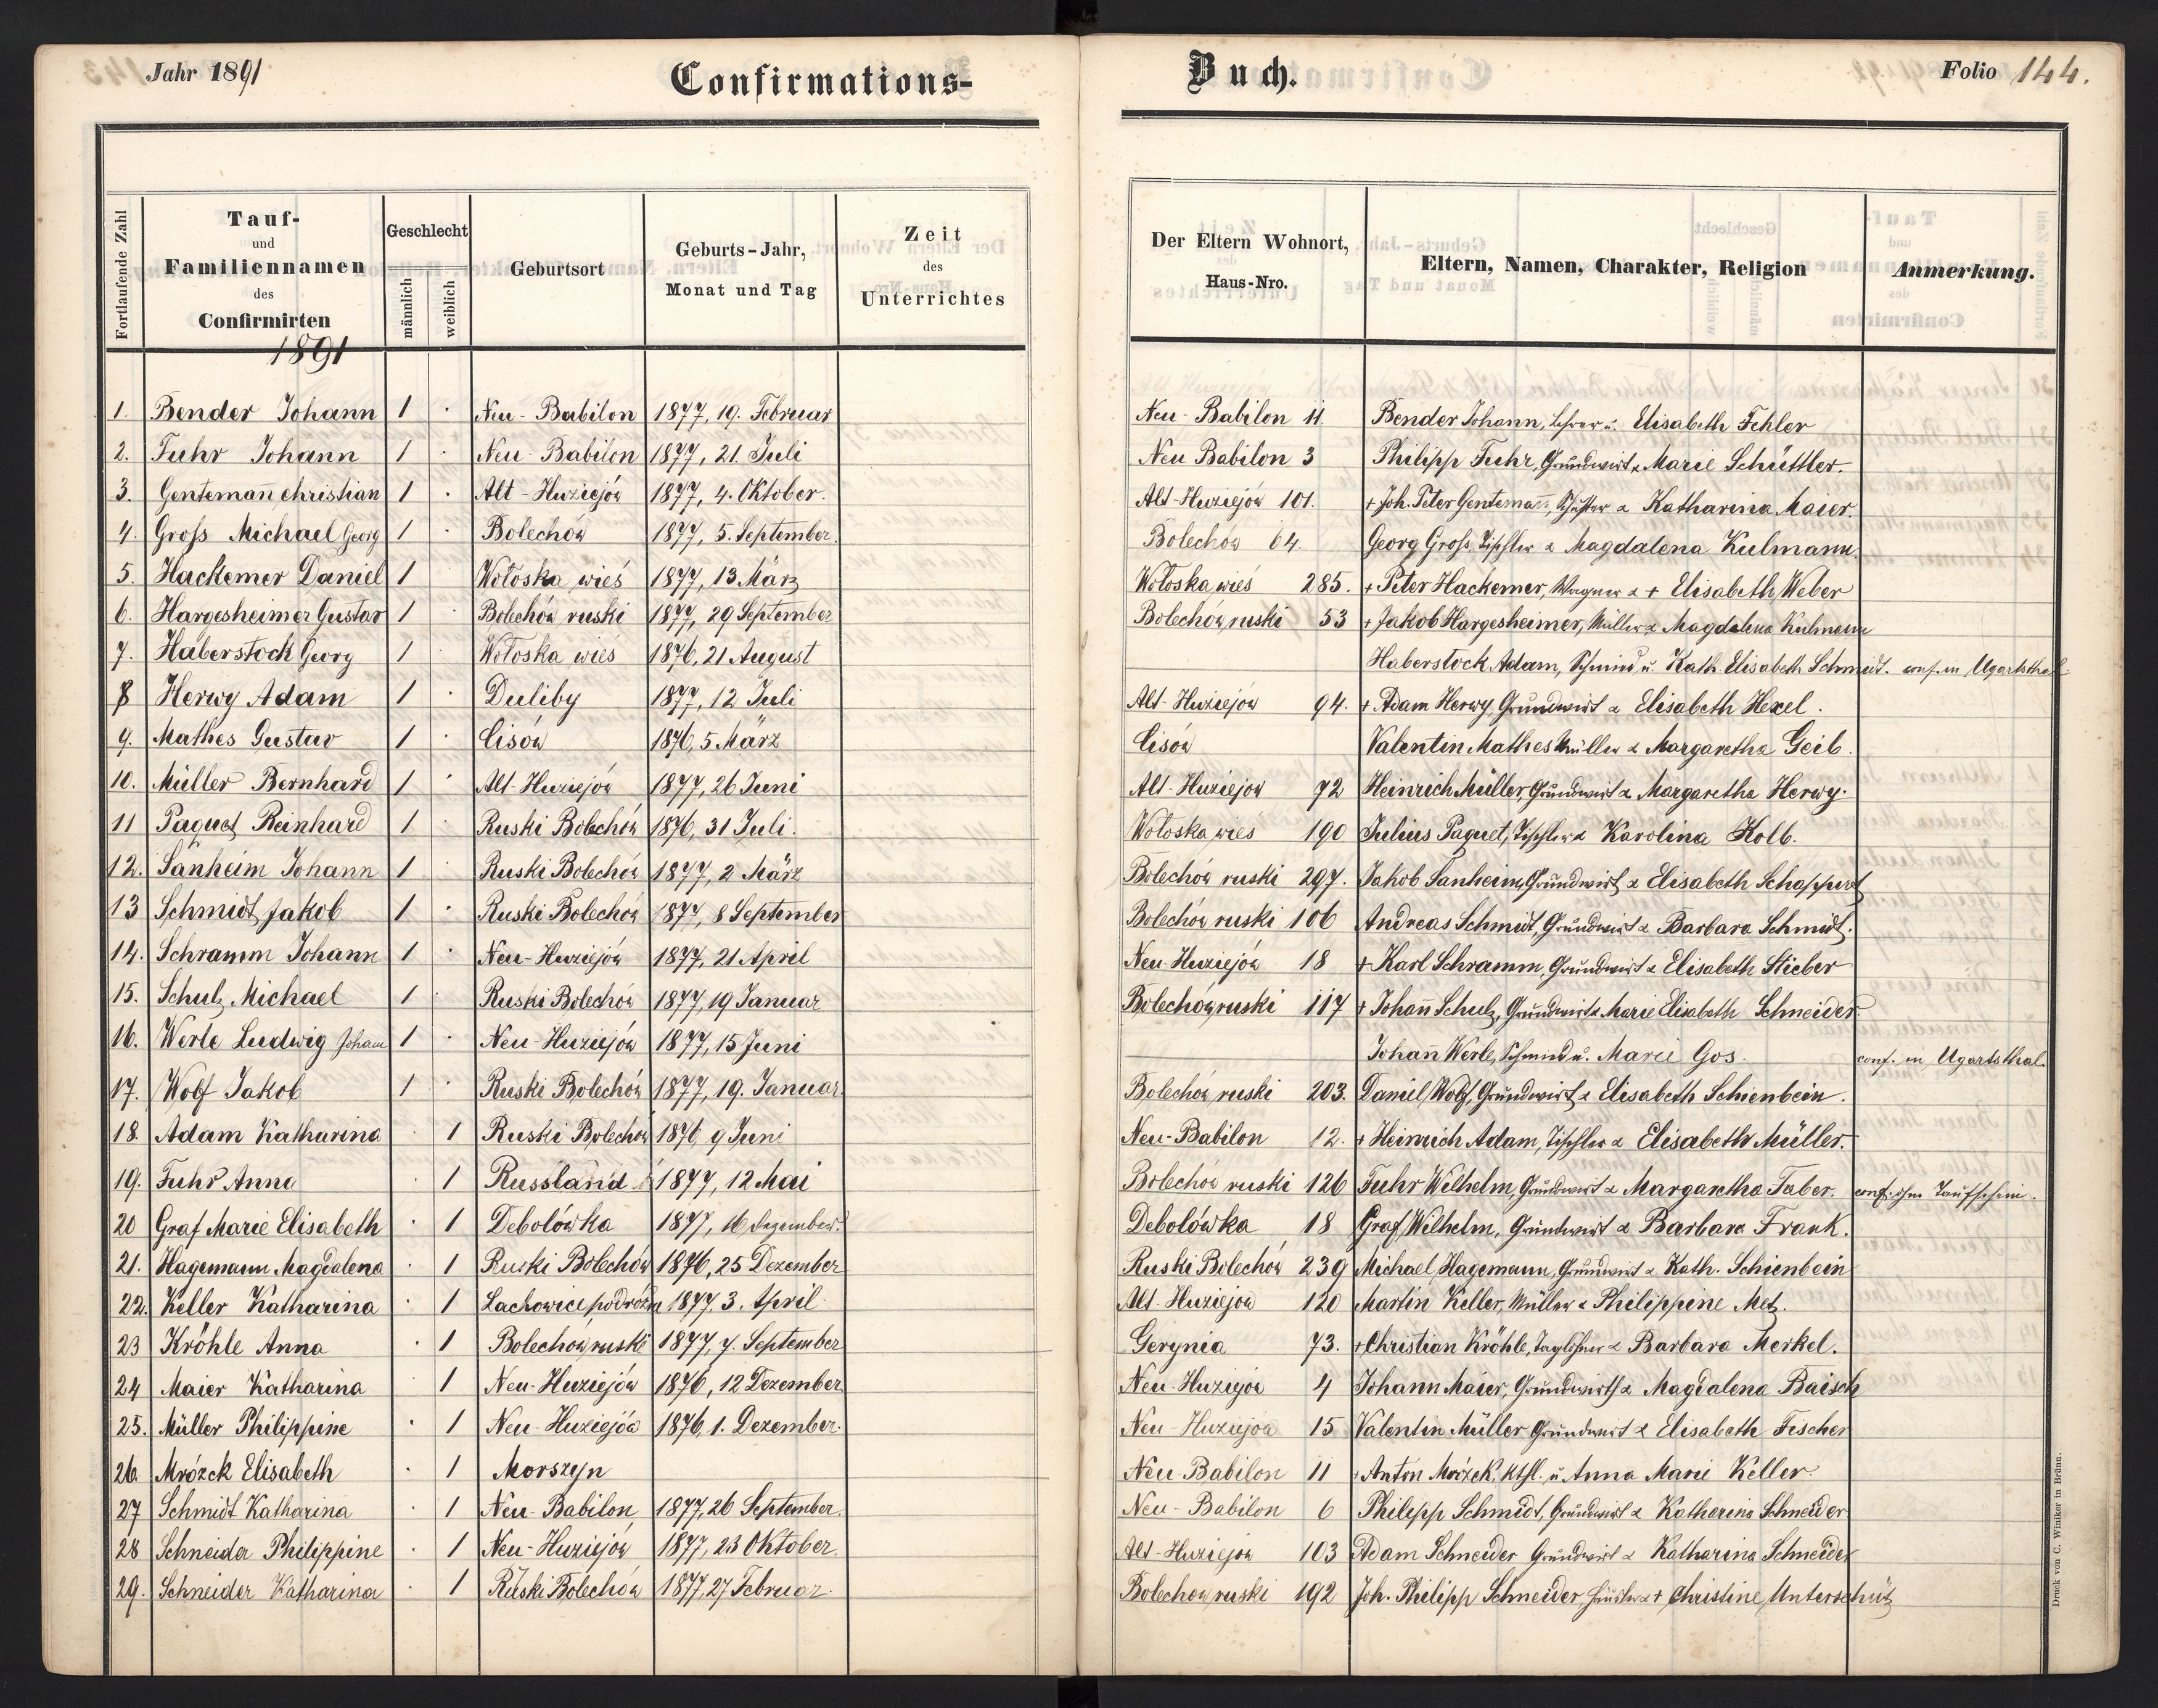 Jahr 1891
Confirmations-
Buch.
Folio 144.
Fortlaufende Zahl
Tauf-
und
Familiennamen
des
Confirmirten
Geschlecht
männlich
weiblich
Geburtsort
Geburts-Jahr,
Monat und Tag
Zeit
des
Unterrichtes
Der Eltern Wohnort,
Haus-Nro.
Eltern, Namen, Charakter, Religion
Anmerkung.
1891
1. Bender Johann 1 · Neu-Babilon 1877, 19. Februar Neu-Babilon 11. Bender Johann, Lehrer u. Elisabeth Fehler
2. Fuhr Johann 1 · Neu-Babilon 1877, 21. Juli Neu Babilon 3 Philipp Fuhr, Grundwirt & Marie Schüttler.
3. Gentemañ Christian 1 · Alt-Huziejów 1877, 4. Oktober. Alt-Huziejów 101. + Joh. Peter Gentemañ, Schuster & Katharina Maier.
4. Groß Michael Georg 1 · Bolechów 1877, 5. September. Bolechów 64. Georg Groß, Tischler & Magdalena Kulmann.
5. Hackemer Daniel 1 Wołoska wieś 1877, 13 März Wołoska wieś 285. + Peter Hackemer, Wagner & + Elisabeth Weber
6. Hargesheimer Gustav 1 · Bolechów ruski 1877, 29 September Bolechów ruski 53 + Jakob Hargesheimer, Müller & Magdalena Kulmann
7. Haberstock Georg 1 Wołoska wieś 1876, 21 August Haberstock Adam, Schmied u. Kath. Elisabeth Schmidt. conf. in Ugartsthal
8 Herwy Adam 1 · Duliby 1877, 12 Juli Alt-Huziejów 94. + Adam Herwy Grundwirt & Elisabeth Hexel.
9. Mathes Gustav 1 · Cisów 1876, 5 März Cisów Valentin Mathes Müller & Margaretha Geib.
10. Müller Bernhard 1 · Alt-Huziejów 1877, 26 Juni Alt-Huziejow 72 Heinrich Müller, Grundwirt & Margaretha Herwy.
11 Paquet Reinhard 1 · Ruski Bolechów 1876, 31 Juli. Wołoska wieś 190 Julius Paquet, Tischler & Karolina Kolb.
12. Sanheim Johann 1 Ruski Bolechów 1877, 2 März Bolechów ruski 297. Jakob Sanheim, Grundwirt & Elisabeth Schappert
13 Schmidt Jakob 1 · Ruski Bolechów 1877, 8 September Bolechów ruski 106 Andreas Schmidt, Grundwirt & Barbara Schmidt.
14. Schramm Johann 1 · Neu-Huziejów 1877, 21 April Neu-Huziejów 18 + Karl Schramm, Grundwirt & Elisabeth Stieber
15. Schulz Michael 1 · Ruski Bolechów 1877, 19 Januar Bolechów ruski 117 + Johañ Schulz, Grundwirt & Marie Elisabeth Schneider.
16. Werle Ludwig Johann 1 · Neu-Huziejów 1877, 15 Juni Johañ Werle, Schmied u. Marie Gos. conf. in Ugartsthal.
17. Wolf Jakob 1 · Ruski Bolechów 1877, 19. Januar. Bolechów ruski 203. Daniel Wolf, Grundwirt & Elisabeth Schienbein.
18. Adam Katharina · 1 Ruski Bolechów 1876, 9 Juni Neu-Babilon 12. + Heinrich Adam, Tischler & Elisabeth Müller.
19. Fuhr Anna · 1 Russland 1877, 12 Mai Bolechów ruski 126 Fuhr Wilhelm, Grundwirt & Margaretha Faber. conf. ohne Taufschein.
20 Graf Marie Elisabeth · 1 Debolówka 1877, 16 Dezember. Debolówka 18 Graf Wilhelm, Grundwirt & Barbara Frank.
21. Hagemann Magdalena · 1 Ruski Bolechów 1876, 25 Dezember Ruski Bolechów 239 Michael Hagemann, Grundwirt & Kath. Schienbein
22. Keller Katharina · 1 Lachowice podróżn 1877 3. April Alt-Huziejow 120 Martin Keller, Müller & Philippine Metz.
23 Kröhle Anna · 1 Bolechow ruski 1877, 7. September Gerynia 73. + Christian Kröhle, Taglöhner & Barbara Merkel.
24 Maier Katharina · 1 Neu-Huziejów 1876, 12 Dezember Neu-Huziejów 4 Johann Maier, Grundwirt & Magdalena Baisch
25. Müller Philippine · 1 Neu-Huziejów 1876, 1. Dezember. Neu-Huziejów 15 Valentin Müller Grundwirt & Elisabeth Fischer
26. Mrózek Elisabeth · 1 Morszyn Neu-Babilon 11 Anton Mrózek, kthl. u. Anna Marie Keller.
27 Schmidt Katharina · 1 Neu-Babilon 1877, 26 September. Neu-Babilon 6 Philipp Schmidt, Grundwirt & Katharina Schneider
28 Schneider Philippine · 1 Neu-Huziejów 1877, 23 Oktober. Alt-Huziejow 103 Adam Schneider Grundwirt & Katharina Schneider
29. Schneider Katharina · 1 Ruski Bolechów 1877, 27 Februar. Bolechow ruski 192 Joh. Philipp Schneider, Häusler & + Christine Unterschütz
Druck von C. Winiker in Brünn.